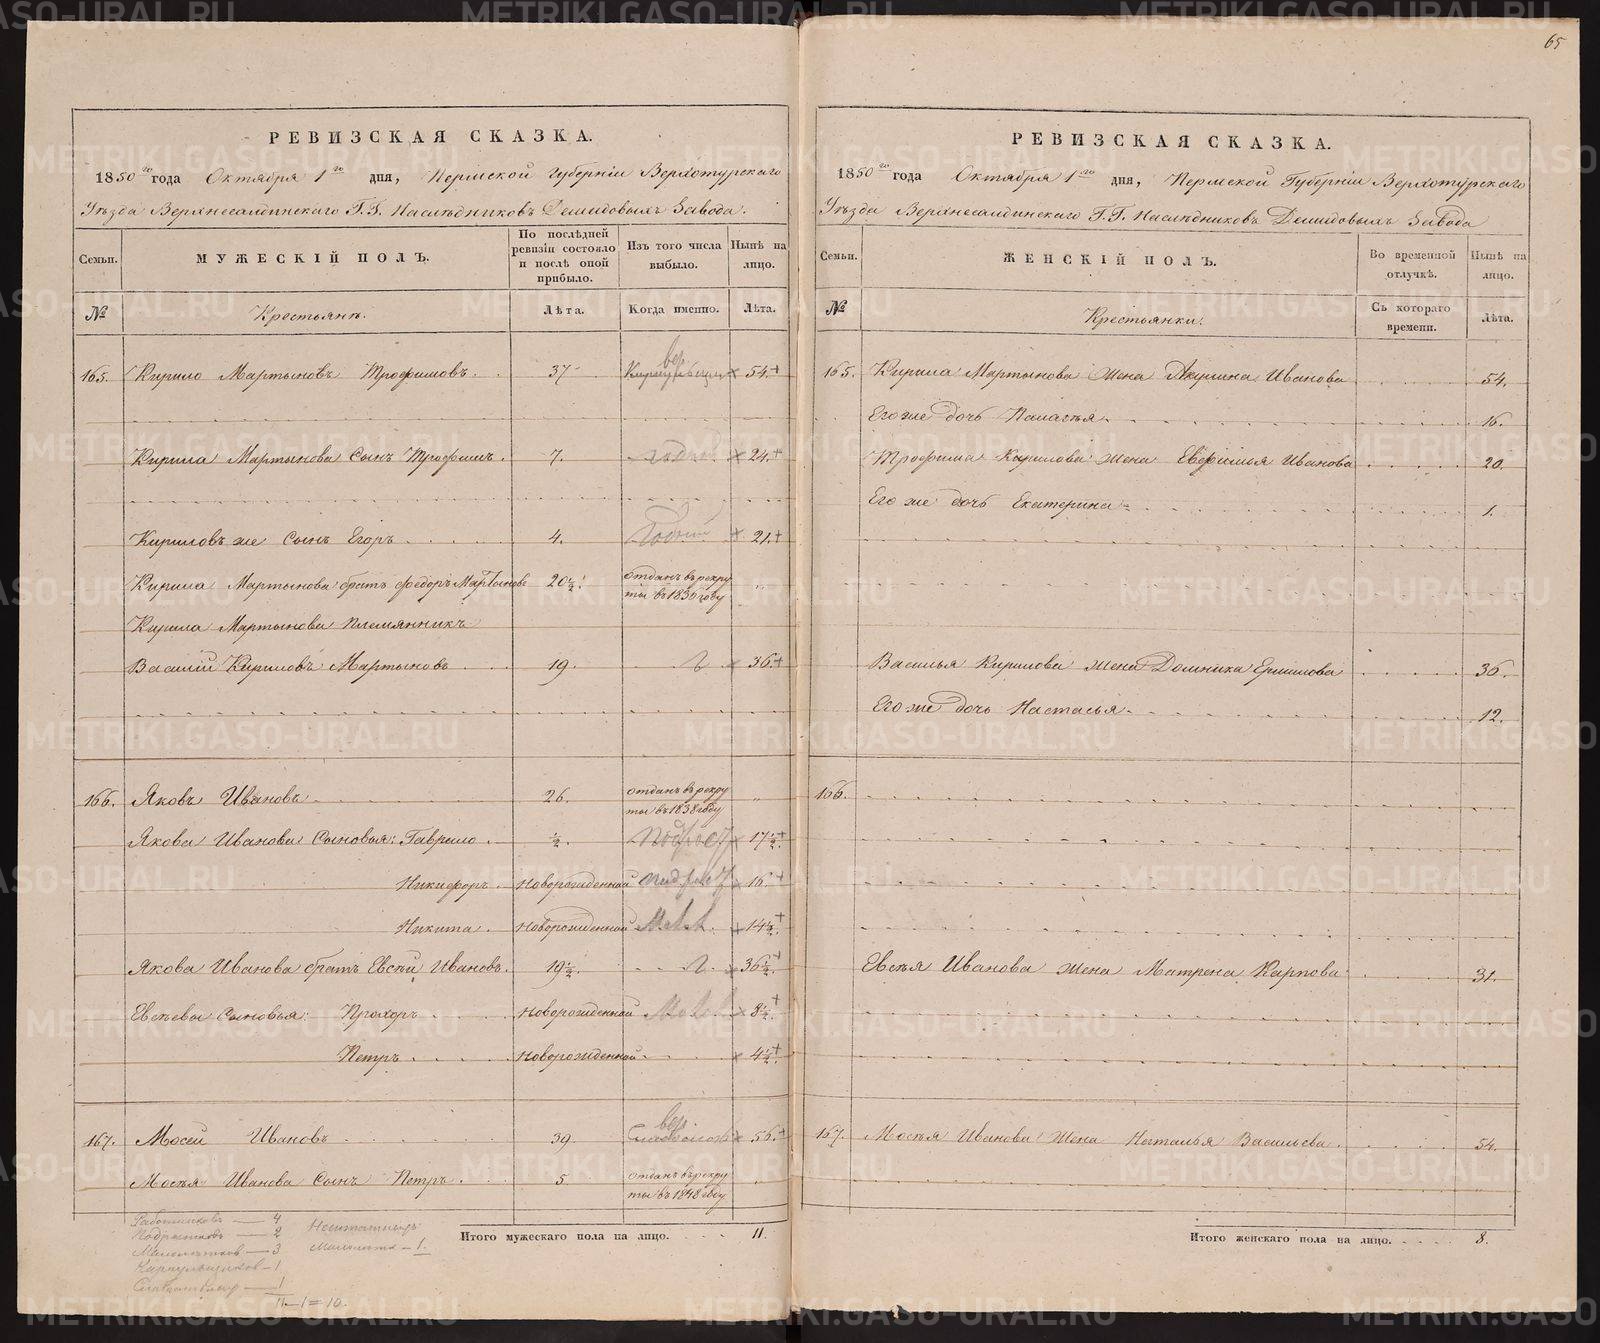 65
РЕВИЗСКАЯ СКАЗКА.
1850го года Октября 1го дня, Пермской Губерніи Верхотурскаго
Уѣзда Верхнесалдинскаго Г.Г. Наслѣдниковъ Демидовыхъ Завода.
Семьи.
МУЖЕСКІЙ ПОЛЪ.
По послѣдней ревизіи состояло и послѣ оной прибыло.
Изъ того числа выбыло.
Нынѣ на лицо.
№
Крестьянъ.
Лѣта.
Когда именно.
Лѣта.
165. Кирило Мартыновъ Трофимовъ. 37 54.
Кирила Мартынова Сынъ Трофимъ. 7. 24.
Кириловъ же Сынъ Егоръ 4. 21.
Кирила Мартынова братъ Федоръ Мартыновъ 20½. отданъ въ рекруты въ 1836 году „
Кирила Мартынова племянникъ
Василій Кириловъ Мартыновъ 19. 36.
166. Яковъ Ивановъ 26. отданъ въ рекруты въ 1838 году „
Якова Иванова Сыновья: Гаврило ½. Подрост 17½.
Никифоръ. Новорожденной подрост 16.
Никита. Новорожденной Мал. 14½.
Якова Иванова братъ Евсѣй Ивановъ. 19½. 36½.
Евсѣевы Сыновья: Прохоръ Новорожденной Мал 8½.
Петръ Новорожденной 4½.
167. Мосей Ивановъ 39. 56.
Мосѣя Иванова Сынъ Петръ 5 отданъ въ рекруты въ 1848 году „
Итого мужескаго пола на лицо. 11.
Работниковъ — 4
Подростковъ — 2
Малолѣтковъ — 3
Караульщиков — 1
— 1
11—1=10.
— 1.
РЕВИЗСКАЯ СКАЗКА.
1850го года Октября 1го дня, Пермской Губерніи Верхотурскаго
Уѣзда Верхнесалдинскаго Г.Г. Наслѣдниковъ Демидовыхъ Завода
Семьи.
ЖЕНСКІЙ ПОЛЪ.
Во временной отлучкѣ.
Нынѣ на лицо.
№
Крестьянки.
Съ котораго времени.
Лѣта.
165. Кирила Мартынова Жена Акулина Иванова 54.
Его же дочь Палагѣя 16.
Трофима Кирилова жена Евфимья Иванова 20.
Его же дочь Екатерина 1.
Василья Кирилова жена Домника Ермилова 36.
Его же дочь Настасья 12.
166.
Евсѣя Иванова жена Матрена Карпова 31.
167. Мосѣя Иванова Жена Наталья Васильева 54.
Итого женскаго пола на лицо. 8.
METRIKI.GASO-URAL.RU